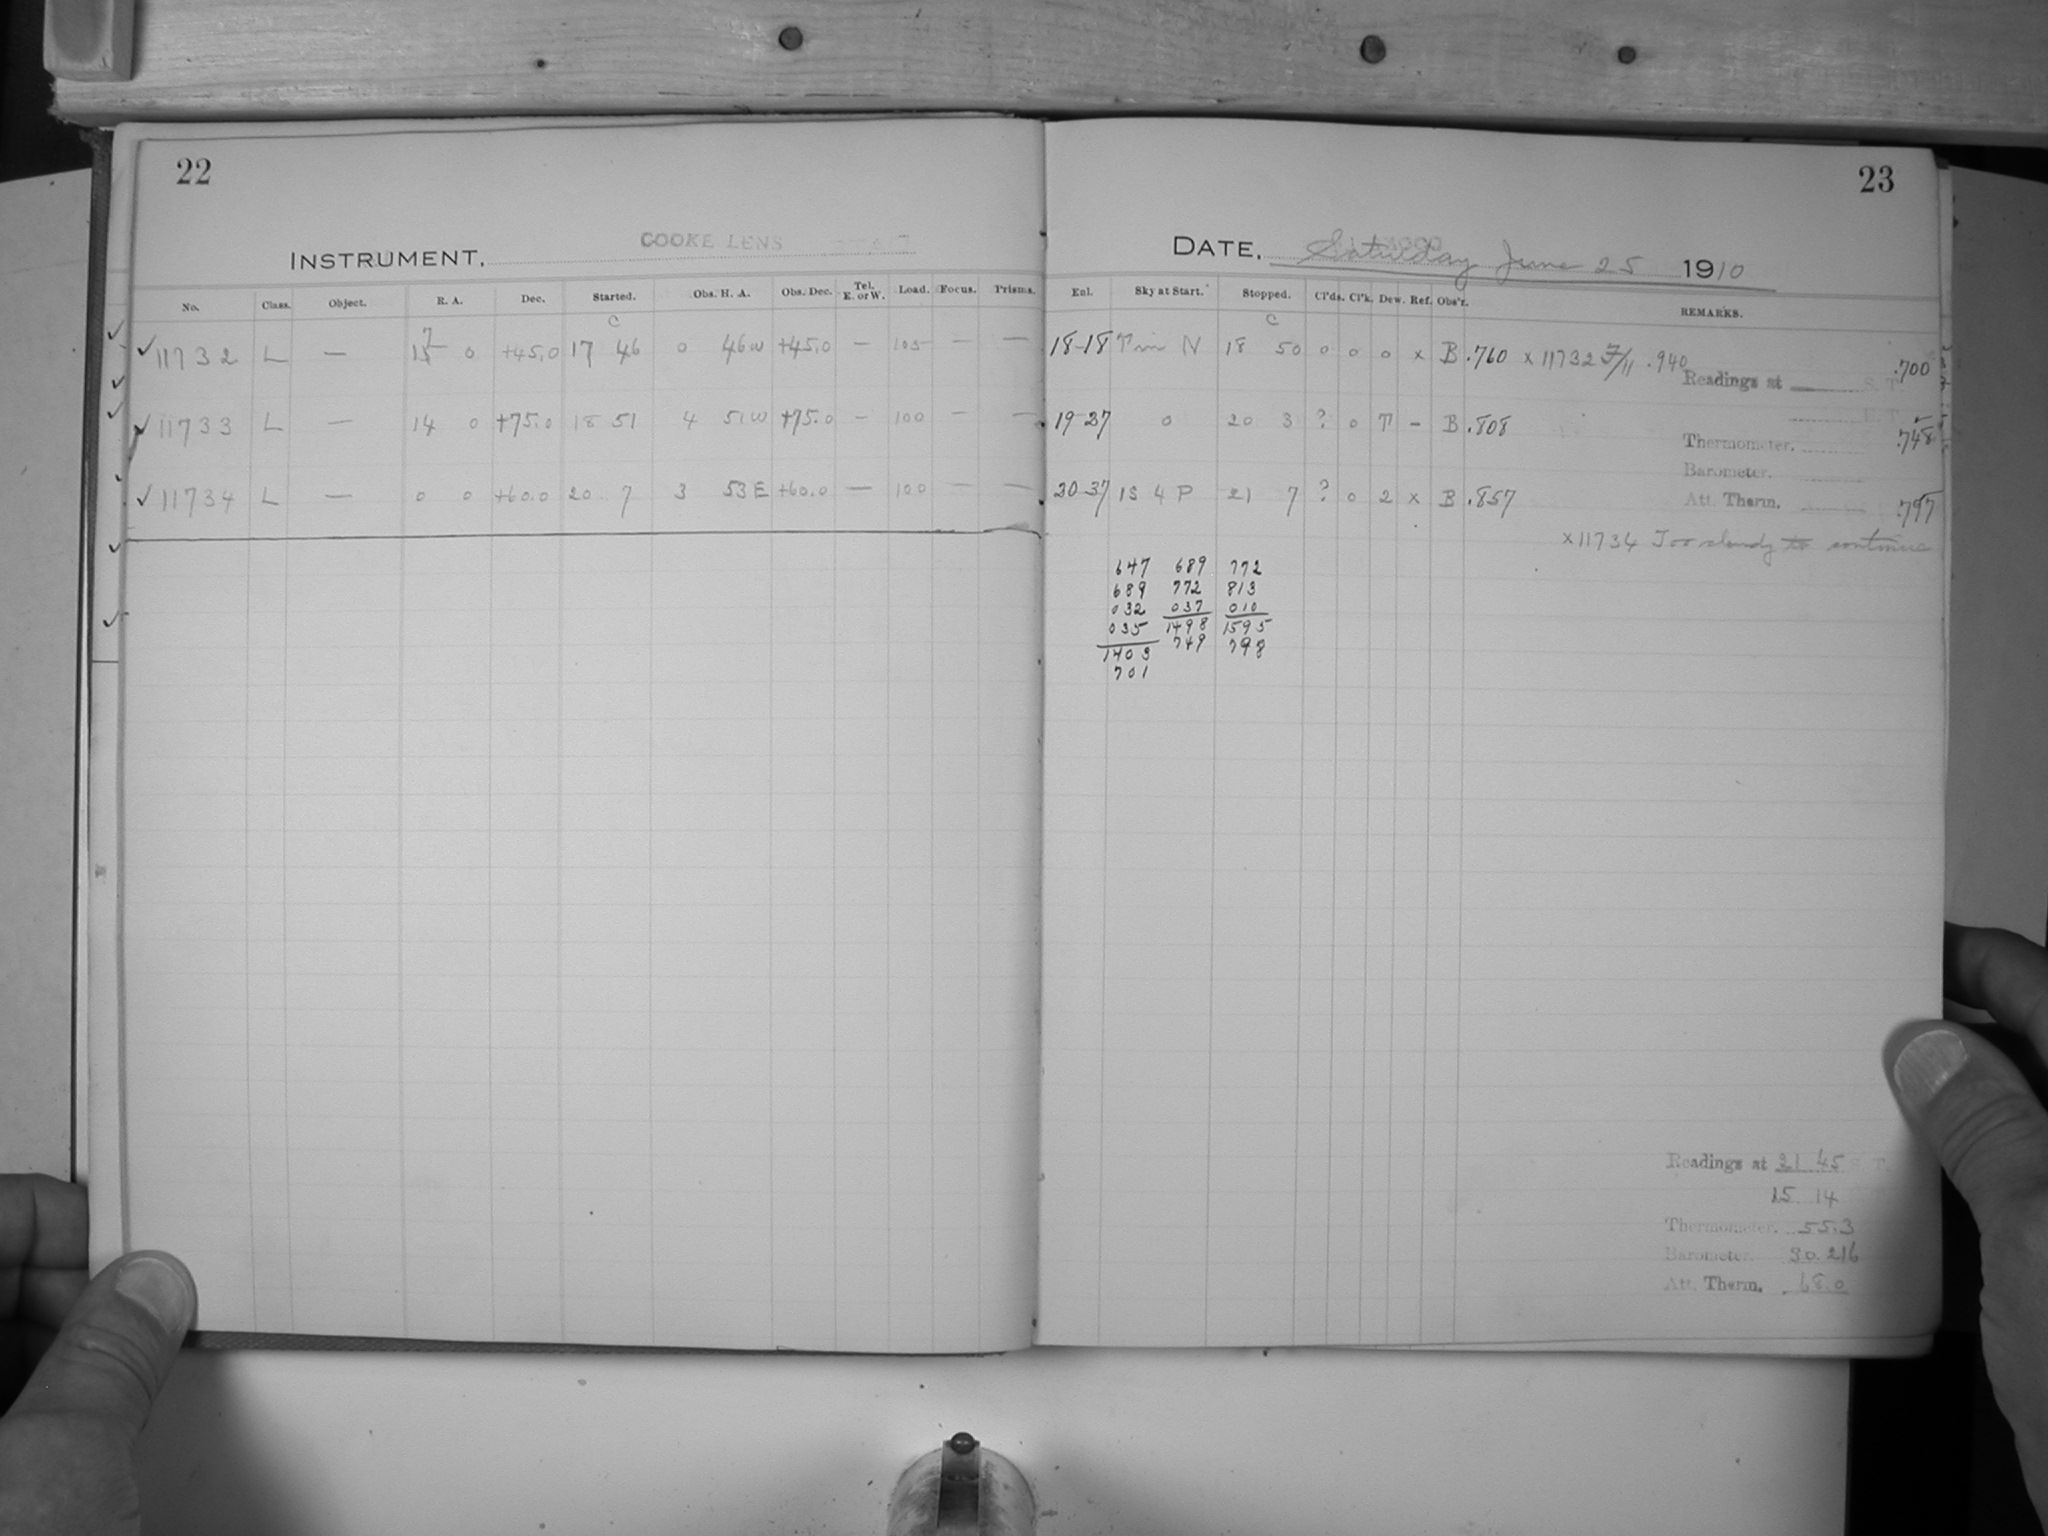 22
23
INSTRUMENT, COOKE LENS
DATE, Saturday June 25 1910
No. Class. Object. R. A. Dec. Started. Obs. H. A. Obs. Dec. Tel. E. or W. Load. Focus. Prisms. Exl. Sky at Start. Stopped. Cl'ds. Cl'k. Dew. Ref. Obs'r. REMARKS.
c c
✓ 11732 L — 17 0 +45.0 17 46 0 46 W +45.0 — 105 — — 18-18 N 18 50 0 0 0 x B .760 x 11732 F/11 .940 .700
Readings at S. T.
✓ 11733 L — 14 0 +75.0 18 51 4 51 W +75.0 — 100 — — 19-27 0 20 3 ? 0 T – B .808 .748
Thermometer.
Barometer.
✓ 11734 L — 0 0 +60.0 20 7 3 53 E +60.0 — 100 — — 20-37 1S 4 P 21 7 ? 0 2 x B .857 .797
Att. Therm.
x 11734 Too cloudy to continue
647 689 772
689 772 813
032 037 010
035 1498 1595
1403 749 798
701
Readings at 21 45 S. T.
15 14
Thermometer. 55.3
Barometer. 30.216
Att. Therm. 68.0